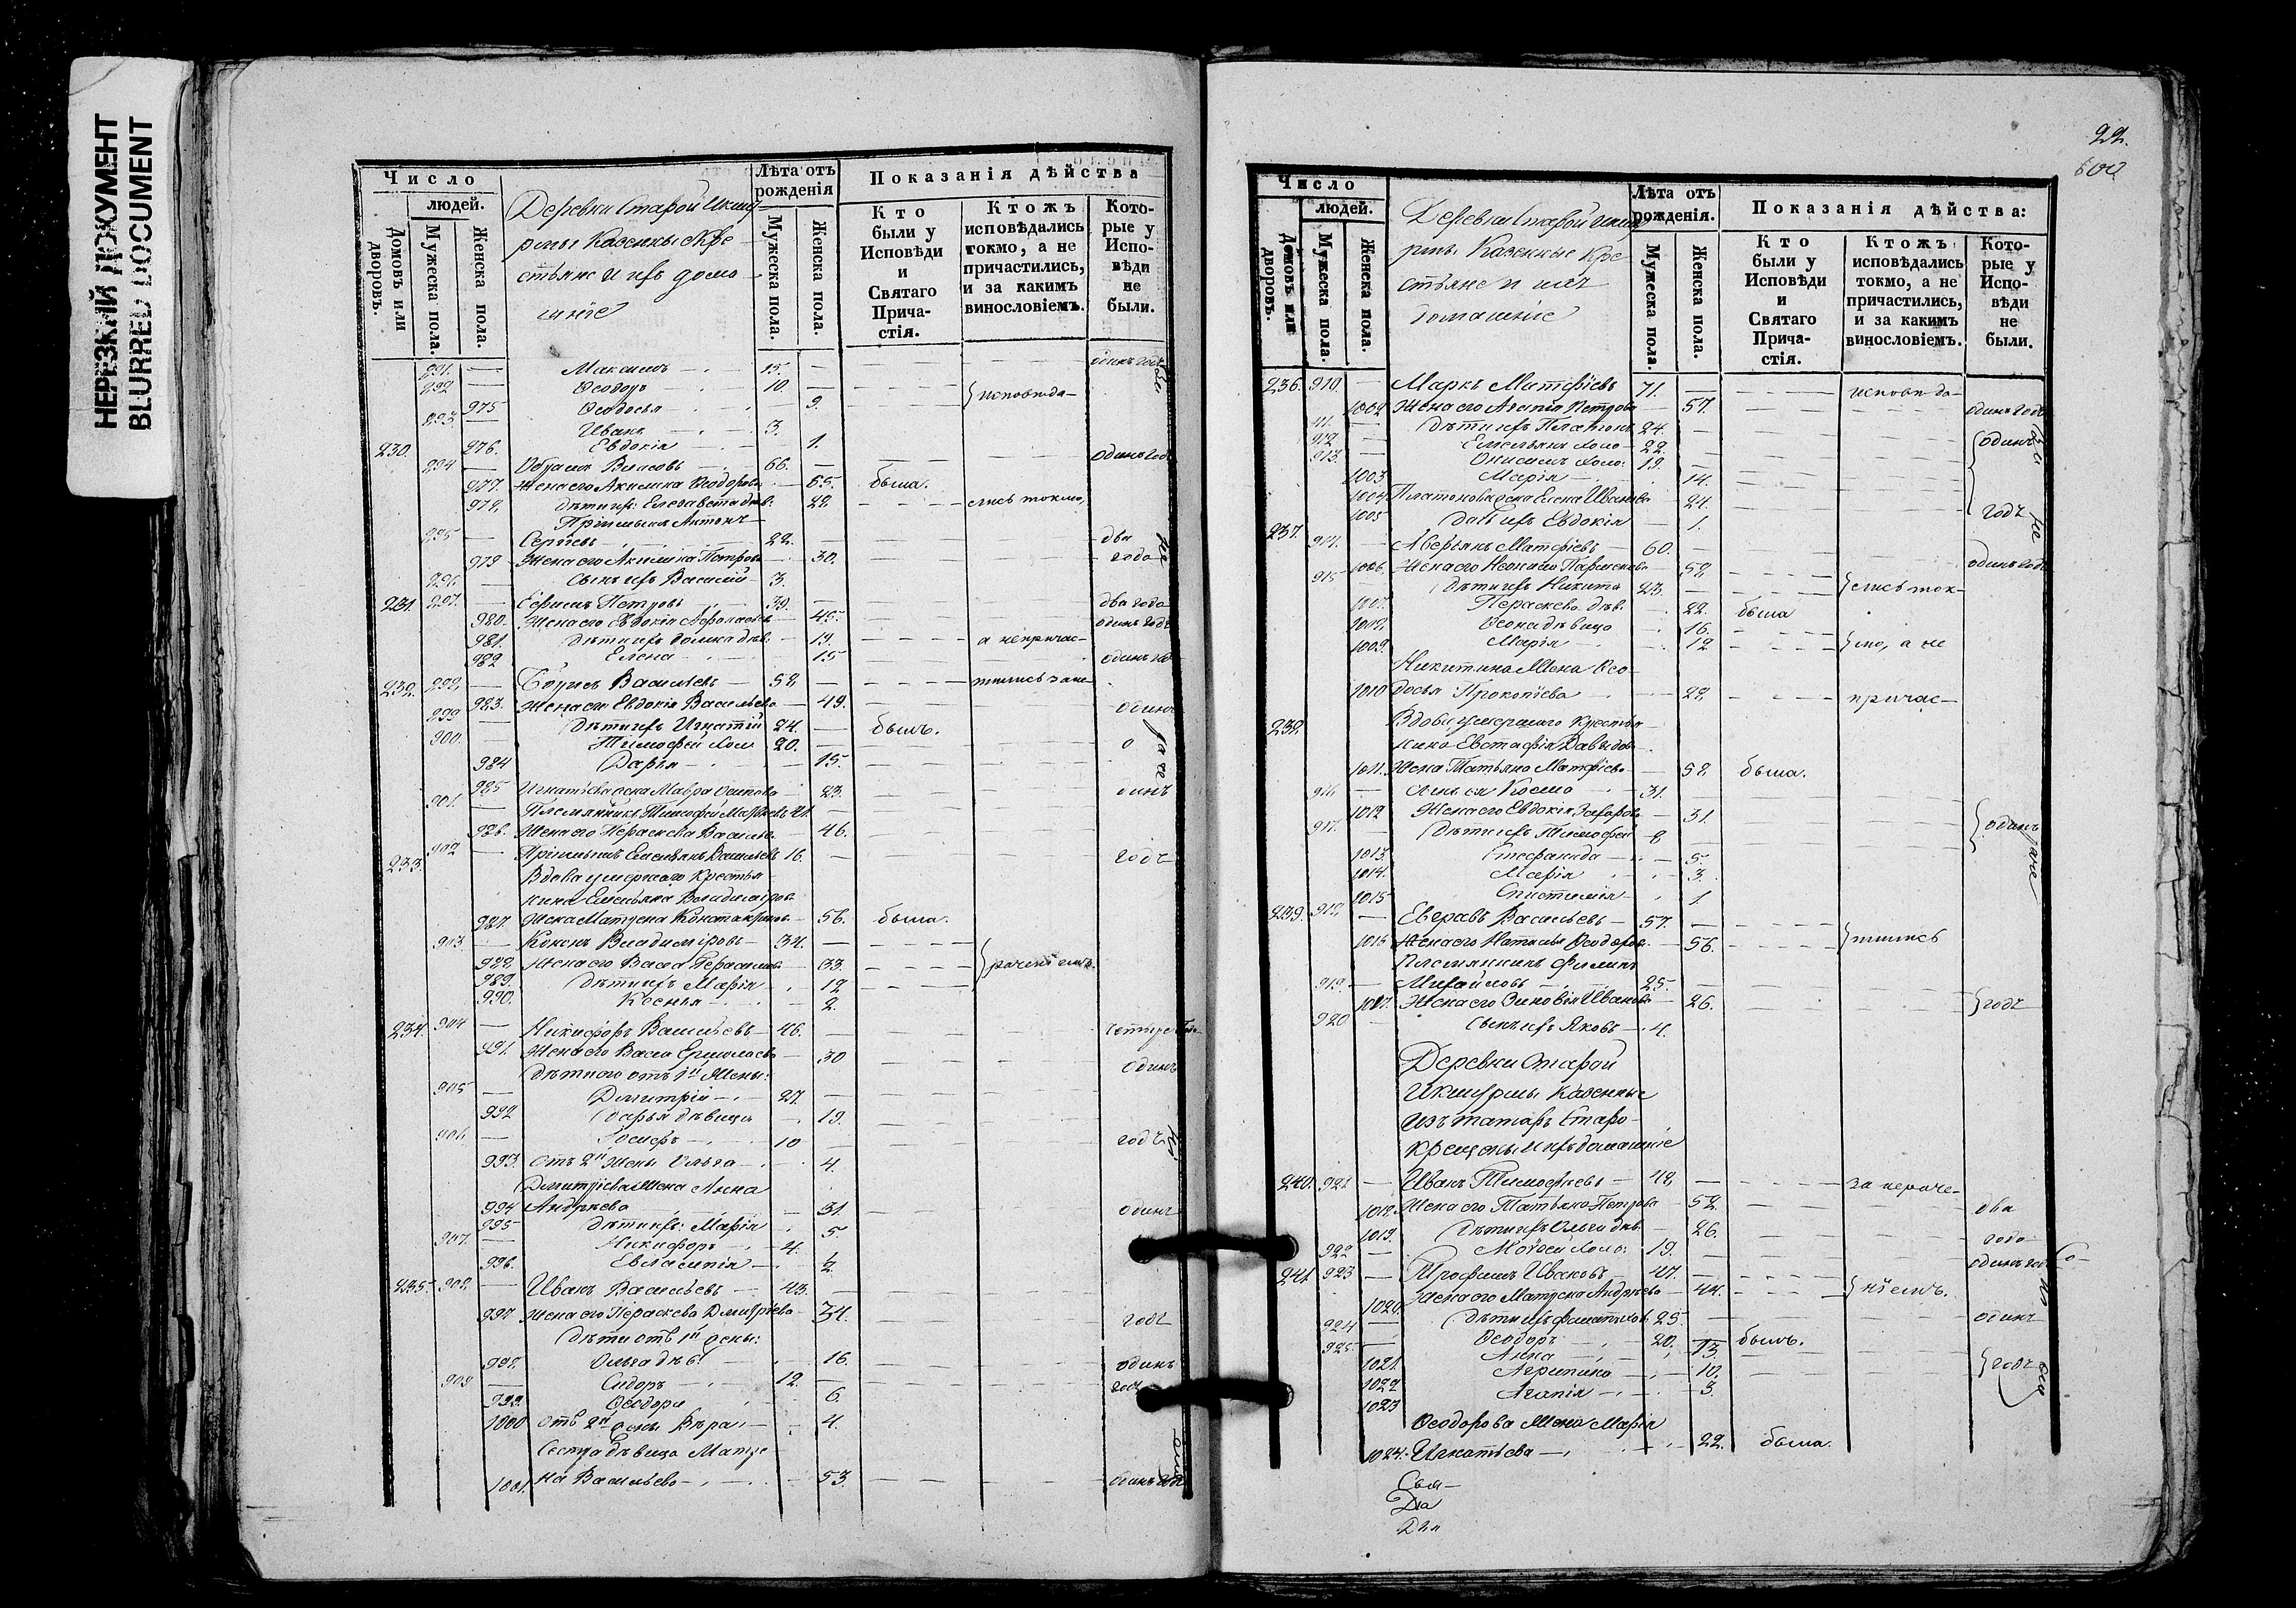 НЕРЕЗКИЙ ДОКУМЕНТ
BLURRED DOCUMENT
Число
людей.
Домовъ или дворовъ.
Мужеска пола.
Женска пола.
Деревни Старой Икшу-
рмы Казенные Кре-
стьяне и ихъ дома-
шніе
Лѣта отъ рожденія
Мужеска пола.
Женска пола.
Показанія дѣйства
Кто были у Исповѣди и Святаго Причастія.
Ктожъ исповѣдались токмо, а не причастились, и за какимъ винословіемъ.
Которые у Исповѣди не были.
891. — Максимъ — 15. —
892 — Ѳеодоръ — 10. — исповѣда-
975 Ѳеодосья — 9.
893 — Иванъ — 3.
976. Евдокія — 1.
230. 894 — Абрамъ Власовъ — 66. — одинъ годъ
977. Жена его Акилина Ѳеодорова — 65. была.
978. дѣти ихъ: Елизавета дѣв. 28 — лись токмо,
Пріимышъ Антонъ
895 — Сергѣевъ — 22. — два
979 Жена его Акилина Петрова — 30. — года
896. — Сынъ ихъ Василій — 3.
231. 897. — Ефимъ Петровъ — 39. — два года
980. Жена его Евдокія — 45. — одинъ годъ
981. дѣти ихъ дѣв. — 19. — а непричас-
982 Елена — 15 — одинъ го
232. 898. — Борисъ Васильевъ — 58 — тились за не
983. Жена его Евдокія Васильева — 49. — одинъ
899 — дѣти ихъ Игнатій 24. — былъ.
900. — Тимофей холо 20. —
984 Дарья — 15.
985 Игнатьева жена Мавра Осипова 23. — одинъ
901. — Племянникъ Тимофей 21
986. Жена его Параскева Васильева — 46. —
902 — Пріимышъ Емельянъ Васильевъ 16. — годъ
233. Вдова умершаго крестья-
нина Емельяна Владимірова
987. Жена Матрена Константинова — 56. была.
903 — Кононъ Владиміровъ — 34. —
988. Жена его Васса Герасимова — 33. — раченіемъ.
989. дѣти ихъ Марія — 12
990. Ксенья — 2.
234. 904 — Никифоръ Васильевъ — 46. — четыре го
991. Жена его Васса Ермолаева — 30 — одинъ
дѣти его отъ 1й Жены:
905 — Димитрій — 27. —
992 Дарья дѣвица — 19.
906 — Іосифъ — 10 — годъ
993. Отъ 2й Жены Ольга — 4.
Димитріева Жена Анна
994 Андреева — 31. — одинъ
995 дѣти ихъ: Марія — 5
907. — Никифоръ — 4.
996. Евлампія — ½.
235. 908. — Иванъ Васильевъ — 43. —
997 Жена его Параскева Дмитріева — 34. — годъ
дѣти отъ 1й жены:
998. Ольга дѣв. — 16. — одинъ
909 — Сидоръ — 12. — годъ
999. Ѳеодора — 6.
1000 отъ 2й жены Вѣра — 4.
Сестра дѣвица Матре-
1001. на Васильева — 53. — одинъ годъ
22.
Число
людей.
Домовъ или дворовъ.
Мужеска пола.
Женска пола.
Деревни Старой Икшу
рмы Казенные Кре
стьяне и ихъ
домашніе
Лѣта отъ рожденія.
Мужеска пола
Женска пола.
Показанія дѣйства:
Кто были у Исповѣди и Святаго Причастія.
Ктожъ исповѣдались токмо, а не причастились, и за какимъ винословіемъ.
Которые у Исповѣди не были.
236. 910 — Маркъ Матфѣевъ 71. — исповѣда-
1002 Жена его Агапія Петрова — 57. — одинъ годъ
911. — дѣти ихъ Платонъ 24. —
912 — Емельянъ холо — 22. — одинъ
913. — Онисимъ холо: 19. —
1003 Марія — 14.
1004 Платонова жена Елена Иванова — 24.
1005 дочь ихъ Евдокія — 1. — годъ
237. 914. — Аверьянъ Матфѣевъ — 60. —
1006. Жена его — 58 — одинъ годъ
915 — дѣти ихъ Никита 23. — лись ток-
1007. Параскева дѣв. — 22. была
1008. дѣвица — 16.
1009. Марія — 12 — мо, а не
Никитина Жена Ѳео-
1010 досья Прокопіева — 22 — причас-
238. Вдова умершаго Крестья-
нина Евстафія Давыдова
1011. Жена Татьяна Матфѣева — 58 была.
916 — Сынъ ея Косма — 31. —
1012 Жена его Евдокія Захарова — 31.
917. — дѣти ихъ Тимофей 8 — одинъ
1013. Стефанида — 5.
1014. Марія — 3.
1015 Епистимія — 1
239. 918. — Евграфъ Васильевъ — 57. —
1016 Жена его Наталья Ѳеодорова — 56. — тились
Племянникъ Филипъ
919. — Михайловъ — 25. —
1017. Жена его Зиновія Иванова — 26. — годъ
920. — Сынъ ихъ Яковъ — 4.
Деревни Старой
Икшурмы Казенные
изъ татаръ Старо-
крещены и ихъ домашніе
240. 921 — Иванъ Тимофѣевъ — 48 — за нераче-
1018. Жена его Татьяна Петрова — 52. — два
1019. дѣти ихъ Ольга дѣв. — 26. — года
922 — Моѵсей холо: 19. —
241 923 — Трофимъ Ивановъ — 47. — одинъ годъ
1020. Жена его Матрена Андреева — 44. — ніемъ.
924 — дѣти ихъ 25. — одинъ
925. — Ѳеодоръ — 20. — былъ.
1021. Анна — 13. — годъ
1022 Агрипина — 10.
1023 Агапія — 3.
Ѳеодорова Жена Марія
1024. Игнатьева — 22. была.